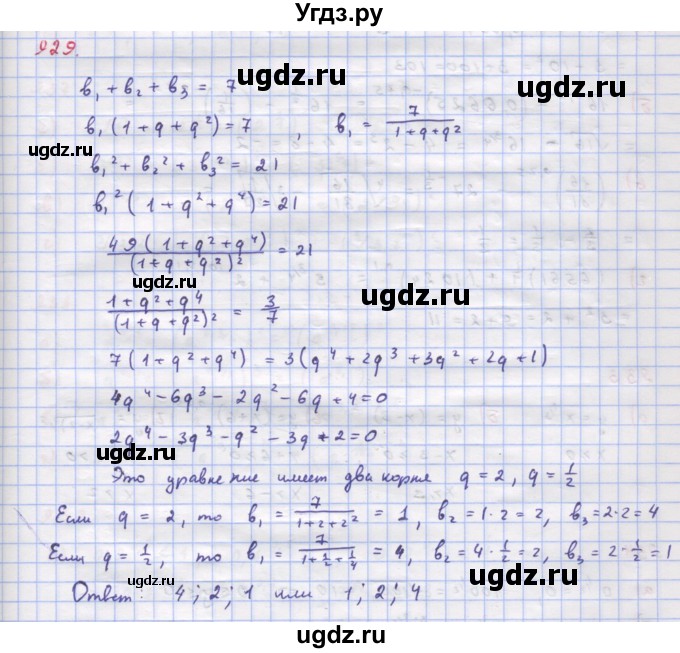 Угдз.ру
929.
b₁ + b₂ + b₃ = 7
ugdz.ru
ugdz.ru
b₁(1 + q + q²) = 7 , b₁ = 7/(1+q+q²)
ugdz.ru
b₁² + b₂² + b₃² = 21
b₁²(1 + q² + q⁴) = 21
49(1 + q² + q⁴)/(1 + q + q²)² = 21
ugdz.ru
ugdz.ru
(1 + q² + q⁴)/(1 + q + q²)² = 3/7
7(1 + q² + q⁴) = 3(q⁴ + 2q³ + 3q² + 2q + 1)
ugdz.ru
4q⁴ - 6q³ - 2q² - 6q + 4 = 0
ugdz.ru
2q⁴ - 3q³ - q² - 3q + 2 = 0
Это уравнение имеет два корня q = 2, q = 1/2
ugdz.ru
Если q = 2, то b₁ = 7/(1+2+2²) = 1, b₂ = 1·2 = 2, b₃ = 2·2 = 4
Если q = 1/2, то b₁ = 7/(1+1/2+1/4) = 4, b₂ = 4·1/2 = 2, b₃ = 2·1/2 = 1
ugdz.ru
ugdz.ru
Ответ: 4; 2; 1 или 1; 2; 4
ugdz.ru
ugdz.ru